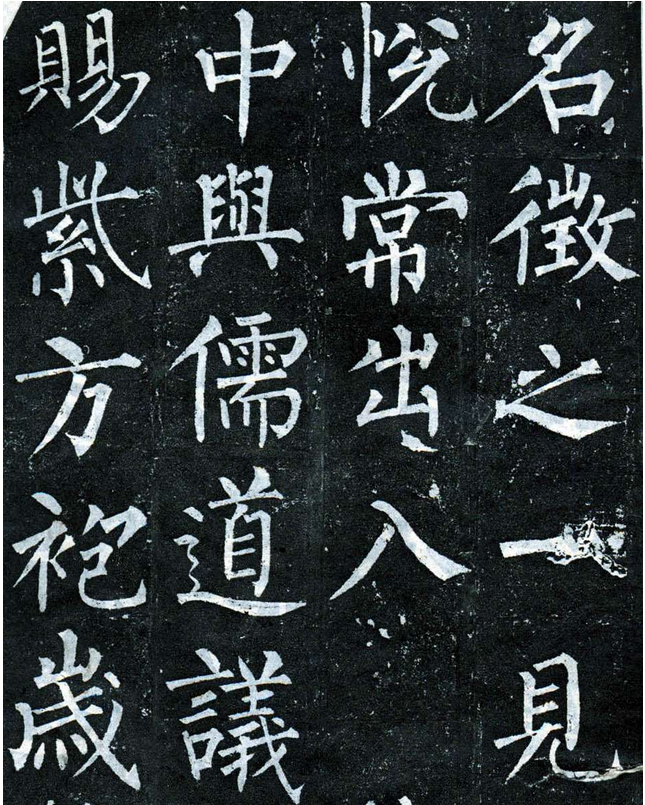 名徵之一見
悅常出入
中與儒道議
賜紫方袍歲